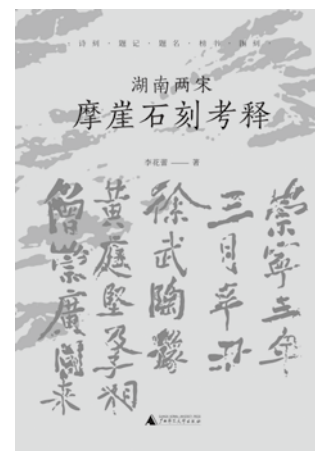 诗刻 · 题记 · 题名 · 榜书
湖南两宋
摩崖石刻考释
李花蕾 —— 著
崇寧三年
三月辛丑
徐武陶豫
黃庭堅及子相
僧崇廣同来
广西师范大学出版社